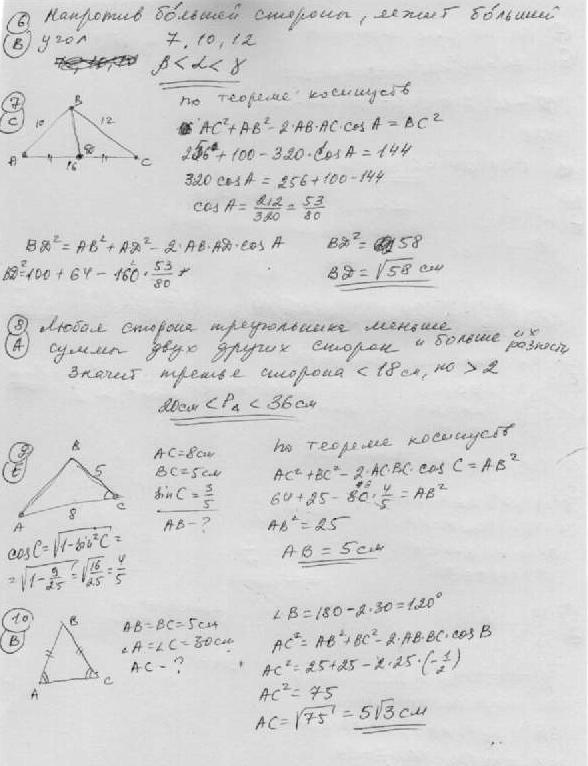 6 Напротив бо́льшей стороны, лежит бо́льший
В угол 7, 10, 12
β < α < γ
7 По теореме косинусов
С
B 10 12 A 8 16 C
AC² + AB² - 2·AB·AC·cos A = BC²
256 + 100 - 320·cos A = 144
320 cos A = 256 + 100 - 144
cos A = 212/320 = 53/80
BD² = AB² + AD² - 2·AB·AD·cos A BD² = 58
BD² = 100 + 64 - 160·53/80 BD = √58 см
8 Любая сторона треугольника меньше
А суммы двух других сторон и больше их разности
Значит третье сторона < 18 см, но > 2
20см < P∆ < 36см
9 По теореме косинусов
Е
B 5 A 8 C
AC = 8см
BC = 5см
sin C = 3/5
AB - ?
AC² + BC² - 2·AC·BC·cos C = AB²
64 + 25 - 80·4/5 = AB²
AB² = 25
AB = 5см
cos C = √1-sin²C =
= √1-9/25 = √16/25 = 4/5
10
В
B A C
AB = BC = 5см
∠A = ∠C = 30см
AC - ?
∠B = 180 - 2·30 = 120°
AC² = AB² + BC² - 2·AB·BC·cos B
AC² = 25 + 25 - 2·25·(-1/2)
AC² = 75
AC = √75 = 5√3 см